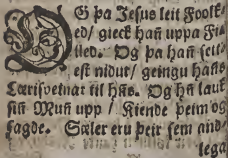 OG þa Jesus leit Foolk-
ed/ gieck hañ uppa Fia
lled. Og þa hañ sett-
est nidur/ geingu hañs
Lærisveinar til hñs. Og hñ lauk
siñ Muñ upp / Kiende þeim og
sagde. Sæler eru þeir sem and-
lega